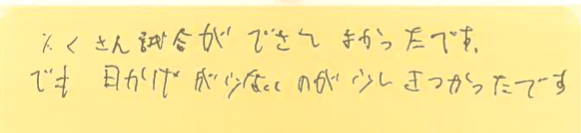 たくさん試合ができてよかったです。
でも日かげが少ないのが少しきつかったです